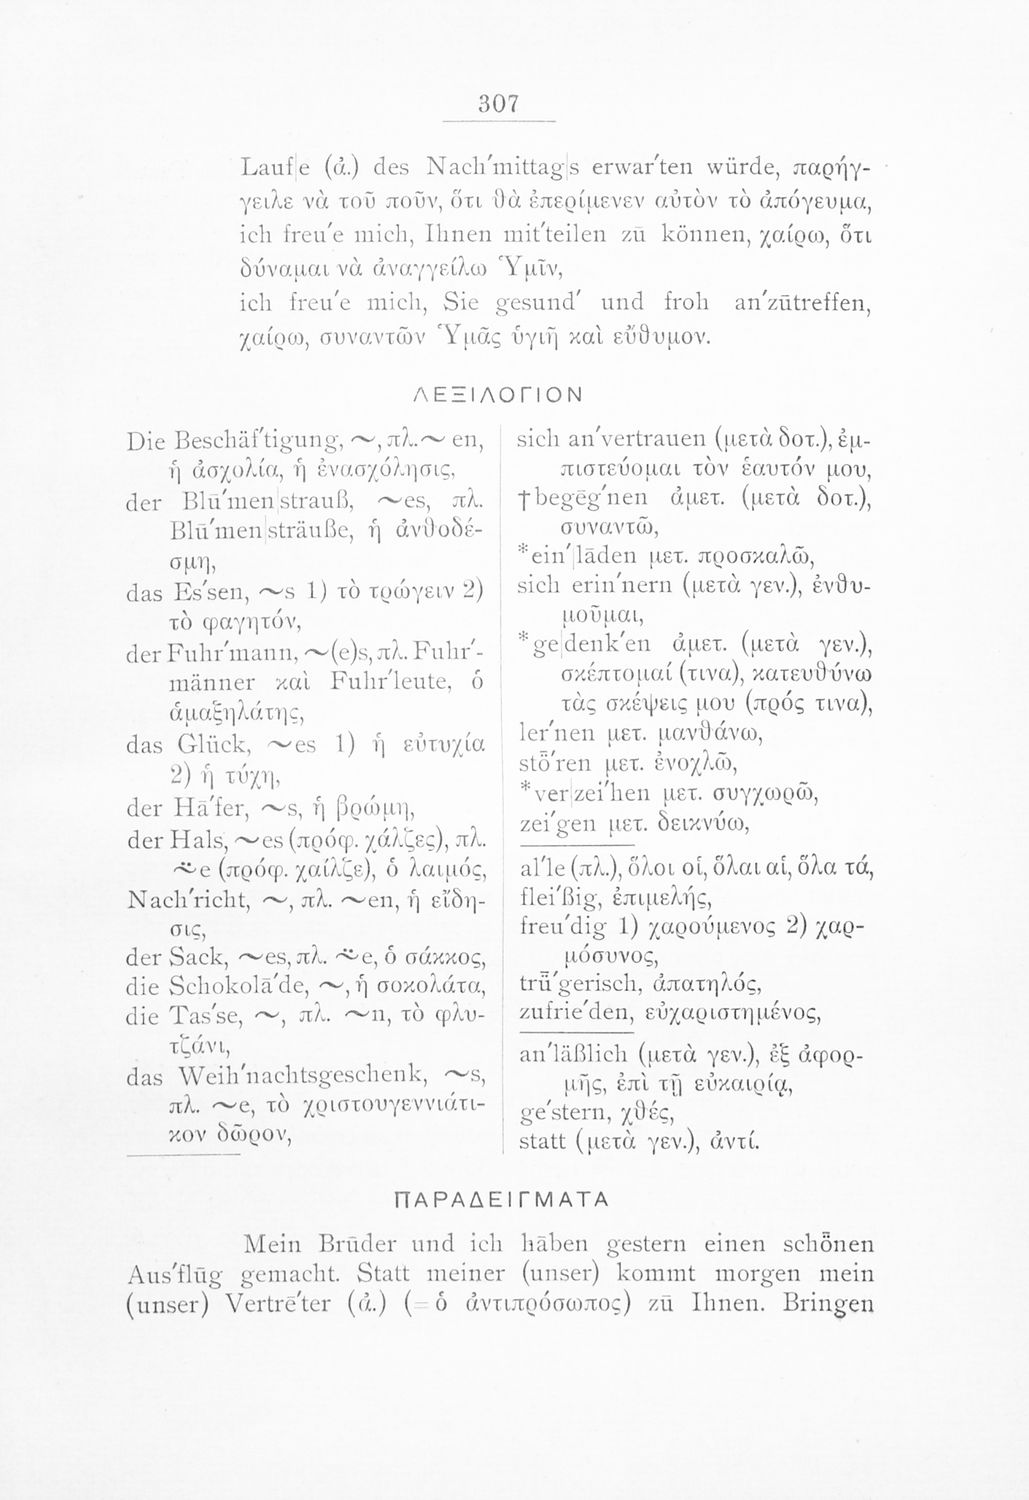 307
Lauf|e (ἀ.) des Nach'mittag|s erwar'ten würde, παρήγ-
γειλε νὰ τοῦ ποῦν, ὅτι θὰ ἐπερίμενεν αὐτὸν τὸ ἀπόγευμα,
ich freu'e mich, Ihnen mit'teilen zū können, χαίρω, ὅτι
δύναμαι νὰ ἀναγγείλω Ὑμῖν,
ich freu'e mich, Sie gesund' und froh an'zūtreffen,
χαίρω, συναντῶν Ὑμᾶς ὑγιῆ καὶ εὔθυμον.
ΛΕΞΙΛΟΓΙΟΝ
Die Beschäf'tigung, ~, πλ. ~ en,
ἡ ἀσχολία, ἡ ἐνασχόλησις,
der Blū'men|strauß, ~es, πλ.
Blū'men|sträuße, ἡ ἀνθοδέ-
σμη,
das Es'sen, ~s 1) τὸ τρώγειν 2)
τὸ φαγητόν,
der Fuhr'mann, ~(e)s, πλ. Fuhr'-
männer καὶ Fuhr'leute, ὁ
ἁμαξηλάτης,
das Glück, ~es 1) ἡ εὐτυχία
2) ἡ τύχη,
der Hā'fer, ~s, ἡ βρώμη,
der Hals, ~es (πρόφ. χάλζες), πλ.
~̈e (πρόφ. χαίλζε), ὁ λαιμός,
Nach'richt, ~, πλ. ~en, ἡ εἴδη-
σις,
der Sack, ~es, πλ. ~̈e, ὁ σάκκος,
die Schokolā'de, ~, ἡ σοκολάτα,
die Tas'se, ~, πλ. ~n, τὸ φλυ-
τζάνι,
das Weih'nachtsgeschenk, ~s,
πλ. ~e, τὸ χριστουγεννιάτι-
κον δῶρον,
sich an'vertrauen (μετὰ δοτ.), ἐμ-
πιστεύομαι τὸν ἑαυτόν μου,
†begēg'nen ἀμετ. (μετὰ δοτ.),
συναντῶ,
*ein'|lāden μετ. προσκαλῶ,
sich erin'nern (μετὰ γεν.), ἐνθυ-
μοῦμαι,
*ge|denk'en ἀμετ. (μετὰ γεν.),
σκέπτομαί (τινα), κατευθύνω
τὰς σκέψεις μου (πρός τινα),
ler'nen μετ. μανθάνω,
stȫ'ren μετ. ἐνοχλῶ,
*ver|zei'hen μετ. συγχωρῶ,
zei'gen μετ. δεικνύω,
al'le (πλ.), ὅλοι οἱ, ὅλαι αἱ, ὅλα τά,
flei'ßig, ἐπιμελής,
freu'dig 1) χαρούμενος 2) χαρ-
μόσυνος,
trǖ'gerisch, ἀπατηλός,
zufrie'den, εὐχαριστημένος,
an'läßlich (μετὰ γεν.), ἐξ ἀφορ-
μῆς, ἐπὶ τῇ εὐκαιρίᾳ,
ge'stern, χθές,
statt (μετὰ γεν.), ἀντί.
ΠΑΡΑΔΕΙΓΜΑΤΑ
Mein Brūder und ich hāben gestern einen schȫnen
Aus'flūg gemacht. Statt meiner (unser) kommt morgen mein
(unser) Vertrē'ter (ἀ.) (= ὁ ἀντιπρόσωπος) zū Ihnen. Bringen